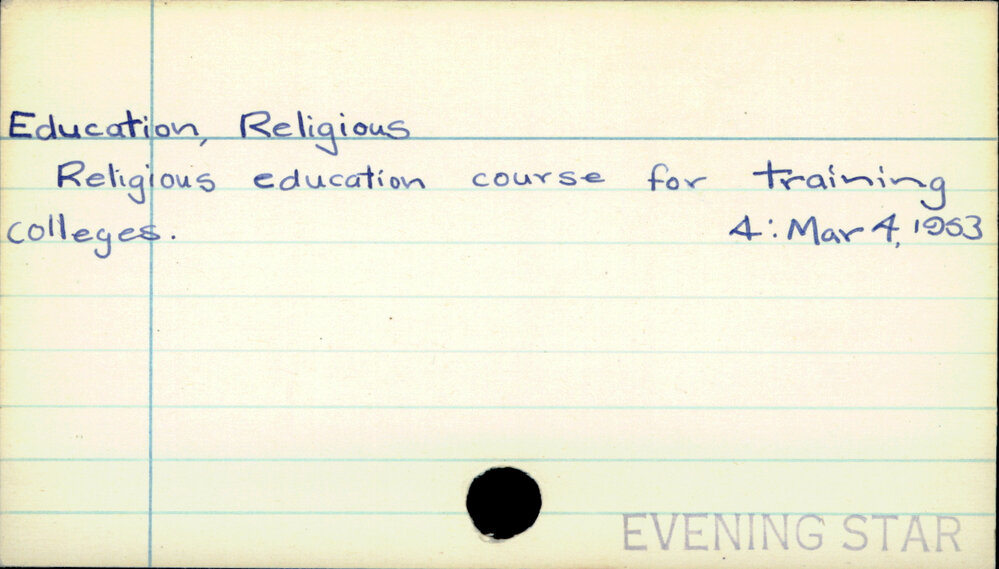 Education, Religious
Religious education course for training
colleges. 4: Mar 4, 1953
EVENING STAR